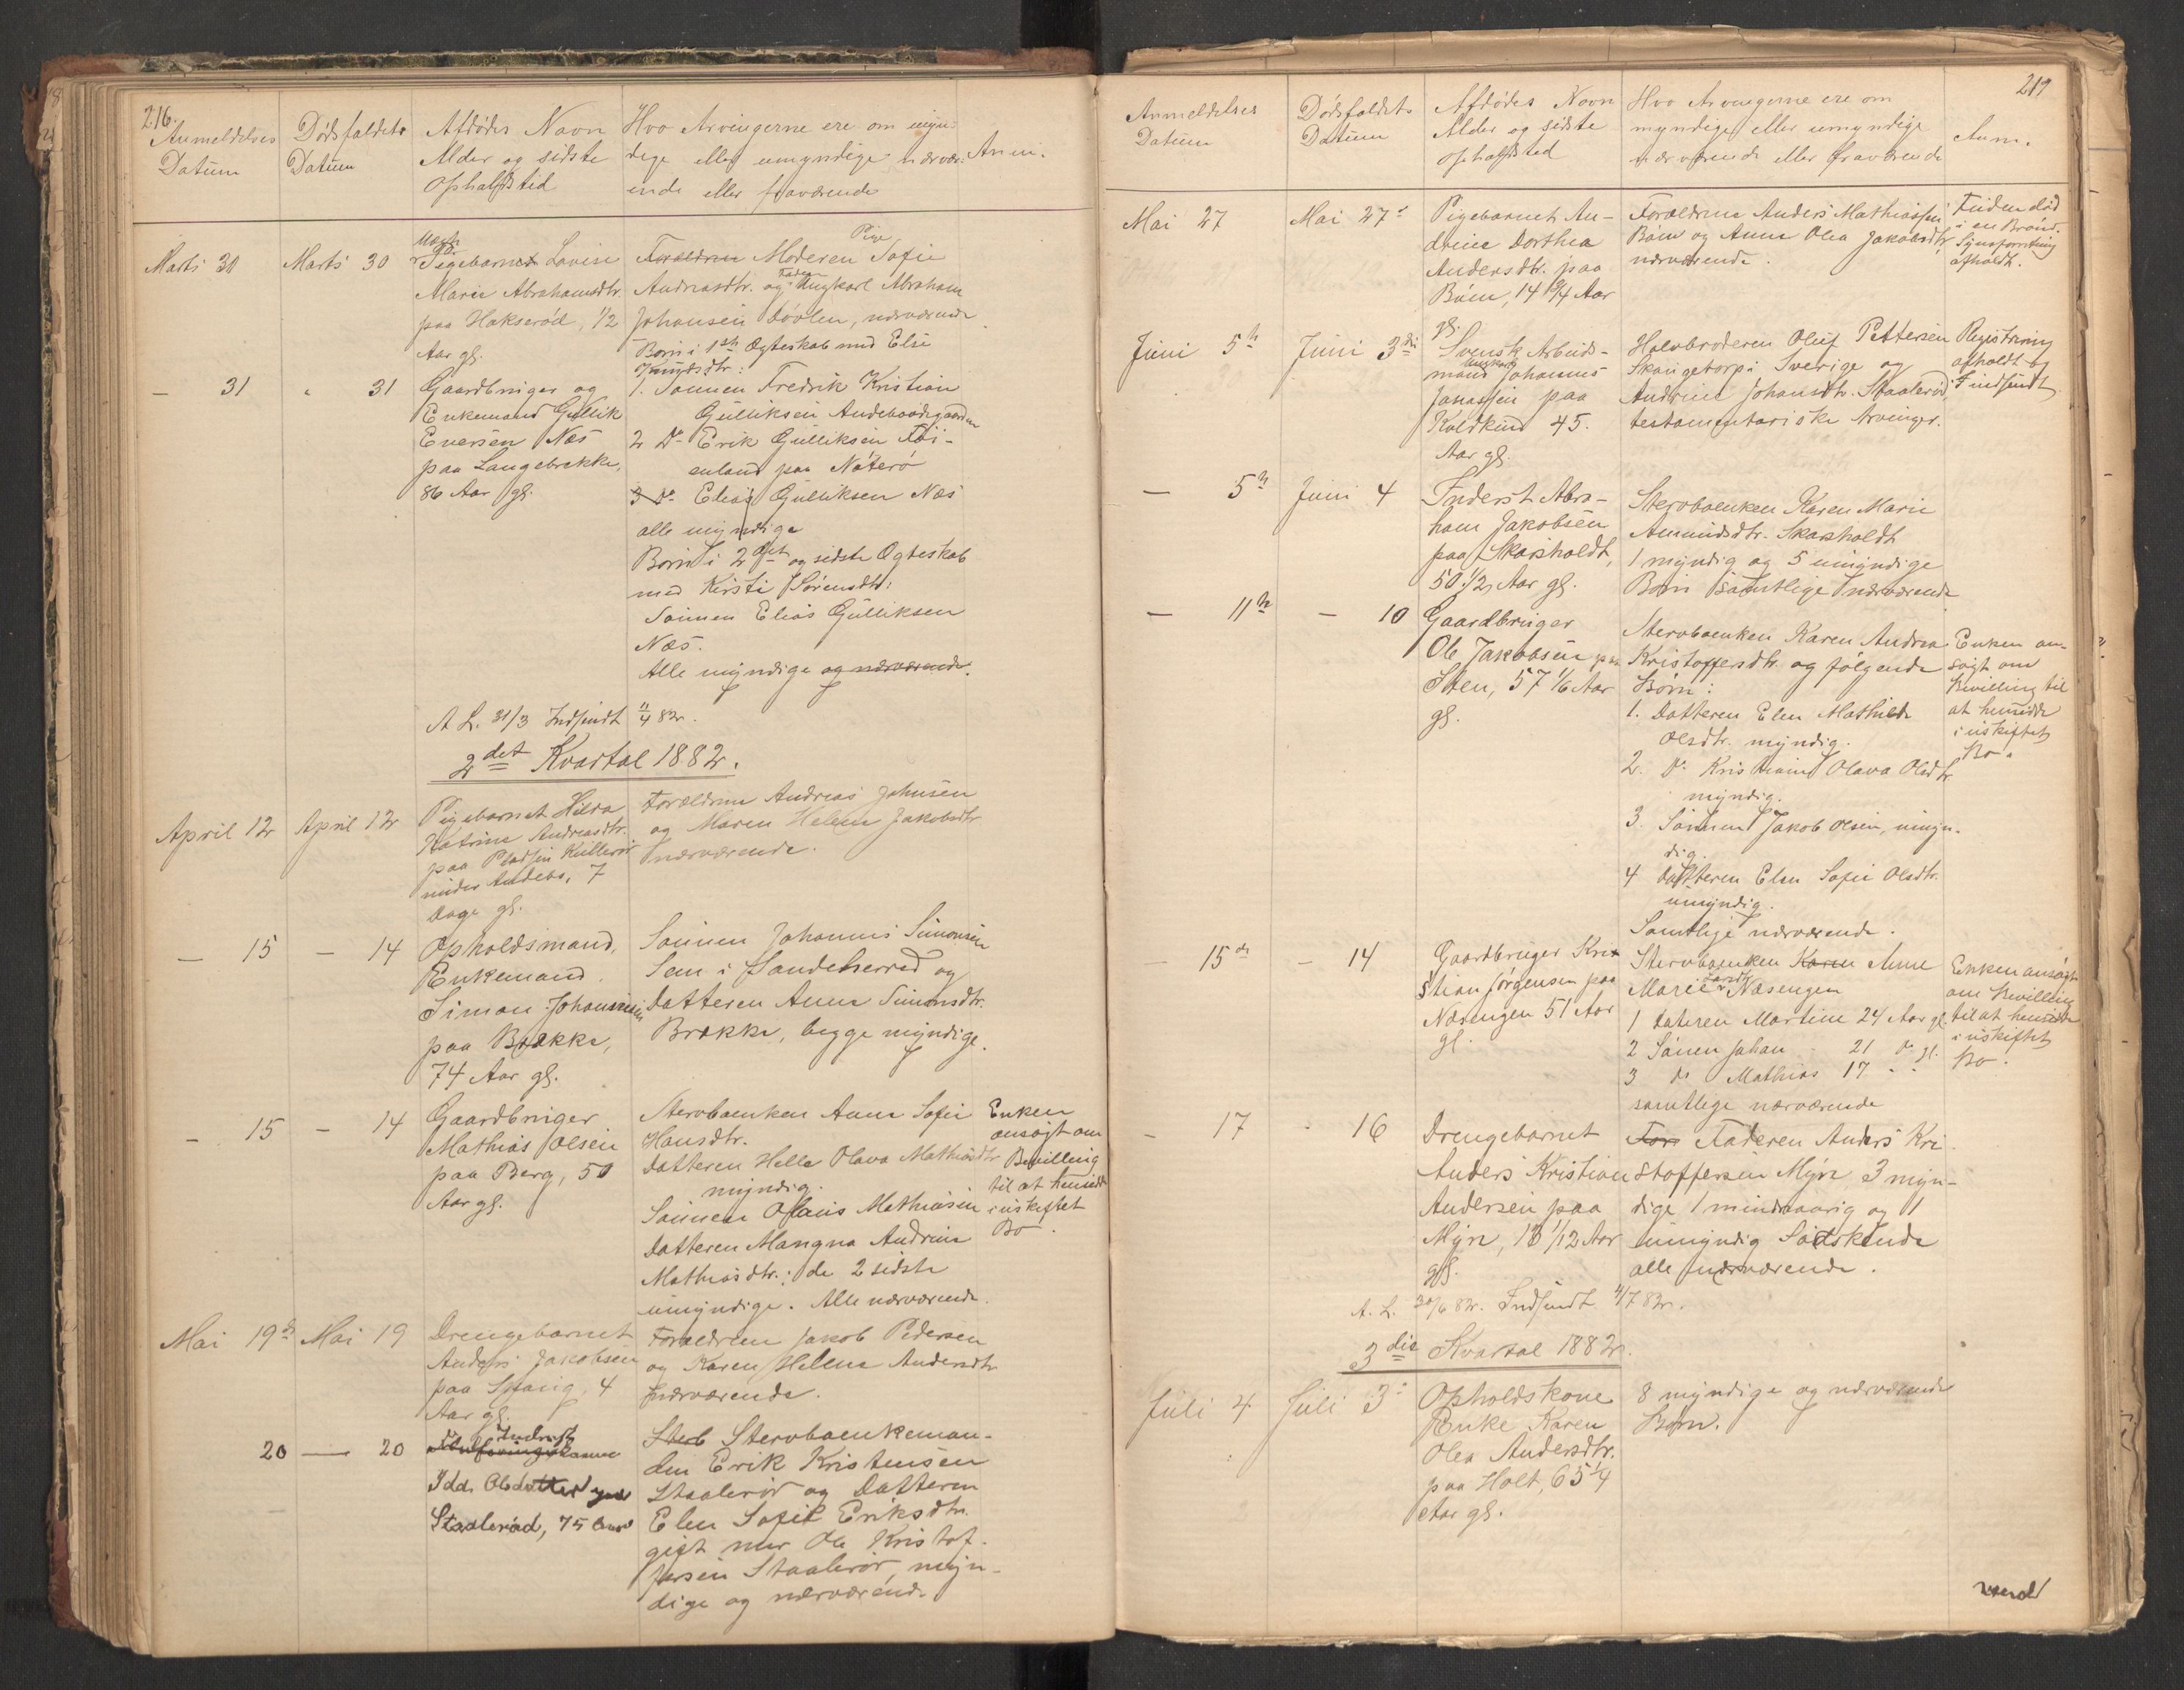 216.
Anmeldelses Datum
Dødsfaldets Datum
Afdødes Navn
Alder og sidste
Opholdssted
Hvo Arvingerne ere om myn-
dige eller umyndige nærvær-
ende eller fraværende
Anm.
Marts 30
Marts 30
Uægte
Pigebarnet Lovise
Marie Abrahamsdtr.
paa Hakserød, 1/2
Aar gl.
Pige
Forældrene Moderen Sofie
Andreasdtr. og Faderen Ungkarl Abraham
Johansen Døvlen, nærværende
— 31
" 31
Gaardbruger og
Enkemand Gullik
Eversen Næs
paa Langebrekke,
86 Aar gl.
Børn i 1ste Ægteskab med Else
dtr:
1. Sønnen Fredrik Kristian
Gulliksen Andebo
2 Do Erik Gulliksen
paa Nøterø
3 Do Elias Gulliksen Næs
alle myndige
Børn i 2det og sidste Ægteskab
med Kirsti Sørensdtr:
Sønnen Elias Gulliksen
Næs.
Alle myndige og nærværende.
A L. 31/3 Indsendt 11/4 82.
2det Kvartal 1882.
April 12
April 12
Pigebarnet Hilda
Katrine Andreasdtr.
paa Pladsen
under Andebo, 7
Dage gl.
Forældrene Andreas Johnsen
og Maren Helene Jakobsdtr
nærværende.
— 15
— 14
Opholdsmand,
Enkemand
Simon Johannesen
paa Brække,
74 Aar gl.
Sønnen Johannes Simonsen
Sem i Sandeherred og
Datteren Anne Simonsdtr.
Brække, begge myndige.
— 15
— 14
Gaardbruger
Mathias Olsen
paa Berg, 50
Aar gl.
Stervboenken Anne Sofie
Hansdtr.
Datteren Helle Olava Mathiasdtr
myndig.
Sønnen Olaus Mathiasen
Datteren Mangna Andrine
Mathiasdtr.; de 2 sidste
umyndige. Alle nærværende.
Enken
ansøgt om
Bevilling
til at hensidde
i uskiftet
Bo.
Mai 19de
Mai 19
Drengebarnet
Anders Jakobsen
paa Skaug, 4
Aar gl.
Forældrene Jakob Pedersen
og Karen Helene Andersdtr
nærværende.
20
— 20
Inderst
Idde Olsdatter paa
Staalerød, 75 Aar
Sterb Stervboenkeman-
den Erik Kristensen
Staalerød og Datteren
Elen Sofie Eriksdtr.
gift m Ole Kristof-
fersen Staalerød, myn-
dige og nærværende
219
Anmeldelses
Datum
Dødsfaldets
Datum
Afdødes Navn
Alder og sidste
Opholdssted
Hvo Arvingerne ere om
myndige eller umyndige
nærværende eller fraværende
Anm.
Mai 27
Mai 27
Pigebarnet An-
drine Dorthea
Andersdtr. paa
Bøen, 14 3/4 Aar
gl.
Forældrene Anders Mathiassen
Bøen og Anne Olea Jakobsdtr
nærværende.
Funden død
i en Brønd.
Synsforretning
afholdt.
Juni 5te
Juni 3die
Svensk Arbeids-
mand Ungkarl Johannes
Jonassen paa
Koldkind 45.
Aar gl.
Halvbroderen Oluf Pettersen
Skangetorp i Sverige og
Andrine Johansdtr. Staalerød,
testamentariske Arvinger.
Registrering
afholdt og
indsendt
— 5te
Juni 4
Inderst Abra-
ham Jakobsen
paa Skarsholdt,
50 1/2 Aar gl.
Stervboenken Karen Marie
Amundsdtr. Skarsholdt
1 myndig og 5 umyndige
Børn samtlige nærværende
— 11te
— 10
Gaardbruger
Ole Jakobsen paa
Sten, 57 1/6 Aar
gl.
Stervboenken Karen Andrea
Kristoffersdtr. og følgende
Børn:
1. Datteren Elen Mathilde
Olsdtr. myndig.
2. Do Kristiane Olava Olsdtr
myndig.
3. Sønnen Jakob Olsen, umyn-
dig.
4 Datteren Elen Sofie Olsdtr.
umyndig.
Samtlige nærværende.
Enken an-
søgt om
Bevilling til
at hensidde
i uskiftet
Bo.
— 15de
— 14
Gaardbruger Kri-
stian Jørgensen paa
Næsengen 51 Aar
gl.
Stervboenken Karen Anne
Marie Larsdtr Næsengen
1 Datteren Martine 24 Aar gl.
2 Sønnen Johan - 21 Do gl.
3 do Mathias 17 " "
samtlege nærværende
Enken ansøgt
om Bevilling
til at hensidde
i uskiftet
Bo.
— 17
- 16
Drengebarnet
Anders Kristian
Andersen paa
Myre, 13 1/12 Aar
gl.
For Faderen Anders Kri-
stoffersen Myre, 3 myn-
dige 1 mindreaarig og 1
umyndig Sødskende
alle nærværende.
A. L. 30/6 82. Indsendt 4/7 82.
3die Kvartal 1882.
Juli 4
Juli 3
Opholdskone
Enke Karen
Olea Andersdtr.
paa Holt, 65 1/4
Aar gl.
8 myndige og nærværende
Børn.
vend